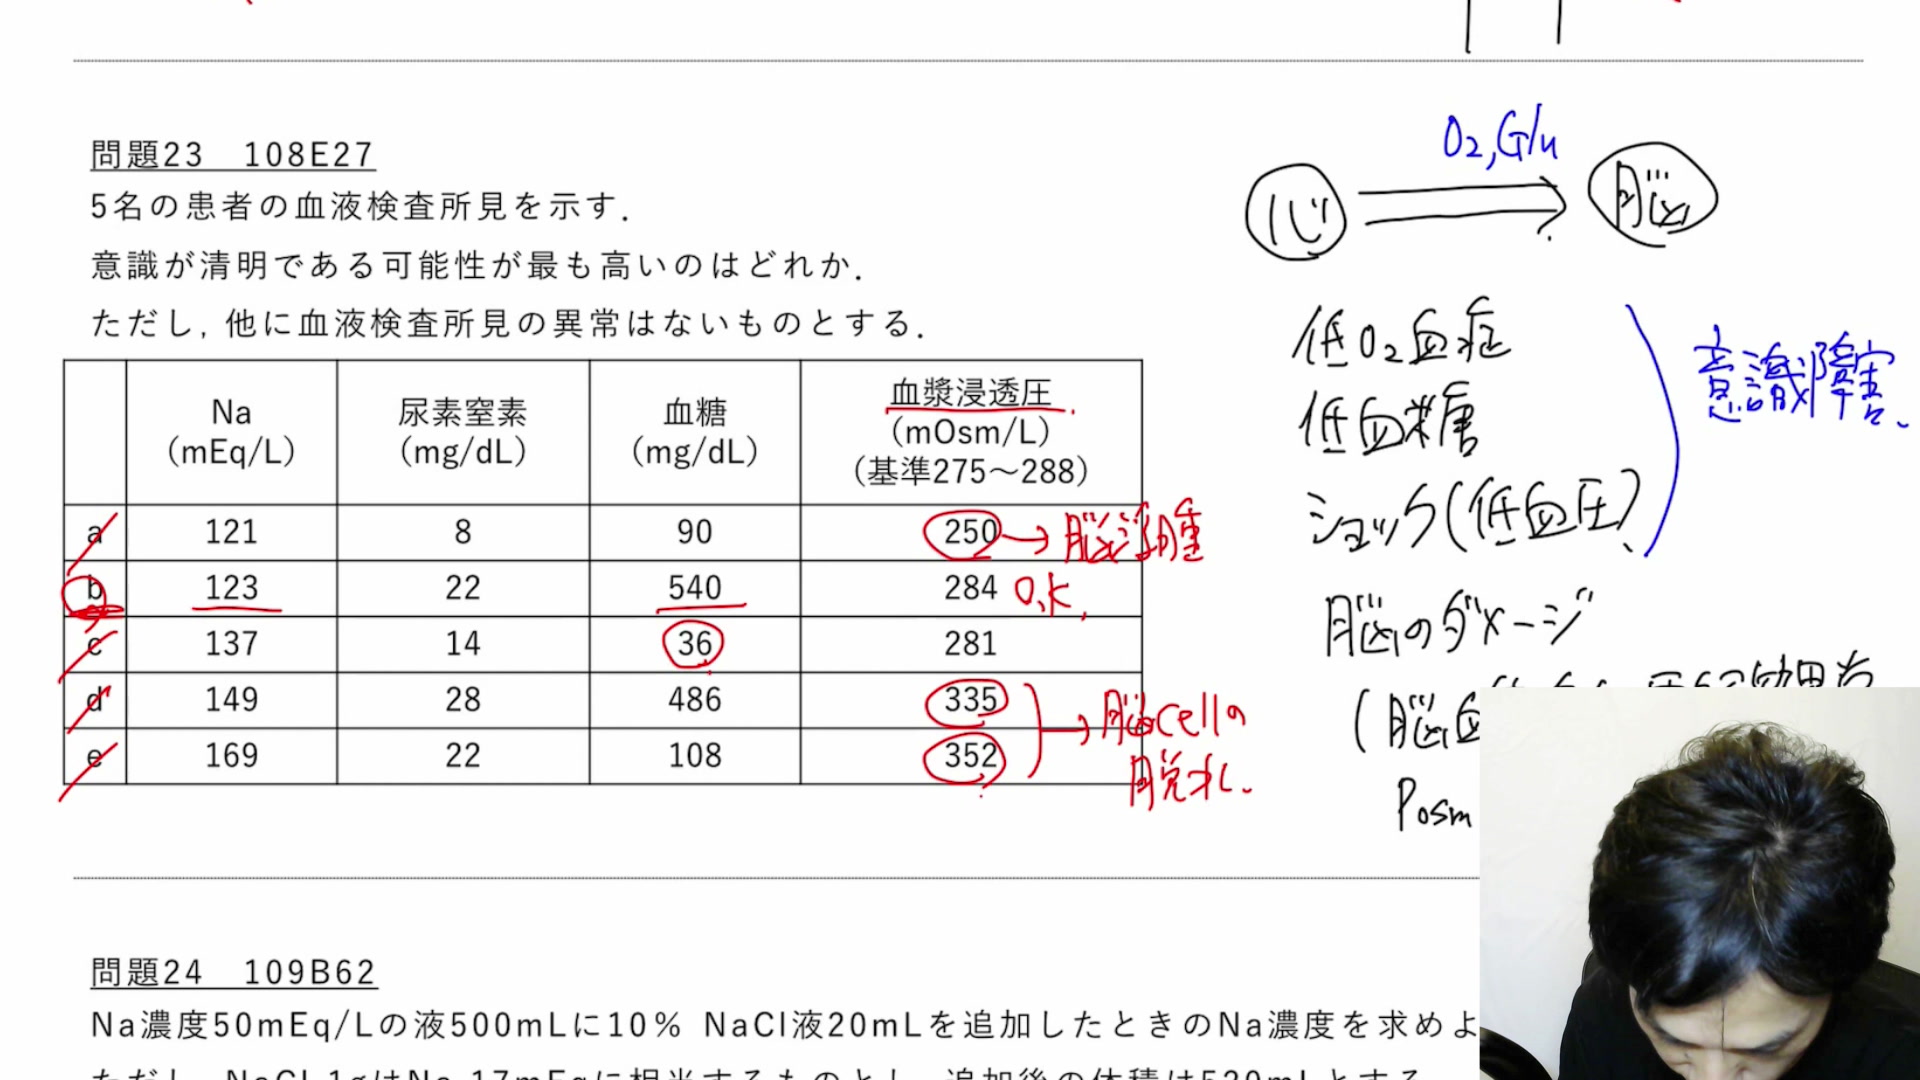 問題23 108E27
5名の患者の血液検査所見を示す.
意識が清明である可能性が最も高いのはどれか.
ただし, 他に血液検査所見の異常はないものとする.
Na (mEq/L) 尿素窒素 (mg/dL) 血糖 (mg/dL) 血漿浸透圧 (mOsm/L) (基準275～288)
a 121 8 90 250 → 脳浮腫
b 123 22 540 284 O.K.
c 137 14 36 281
d 149 28 486 335
e 169 22 108 352
→ 脳cellの
脱水.
O₂, Glu
心 脳
低O₂血症
低血糖
ショック(低血圧)
意識障害.
脳のダメージ
(脳血
Posm
問題24 109B62
Na濃度50mEq/Lの液500mLに10% NaCl液20mLを追加したときのNa濃度を求めよ
ただし, NaCl 1gはNa 17mEqに相当するものとし, 追加後の体積は520mLとする